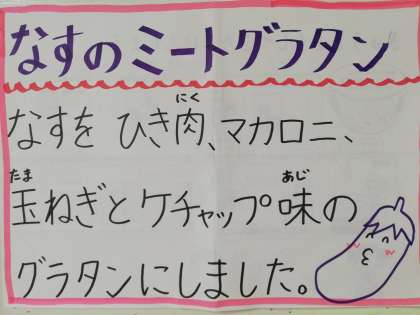 なすのミートグラタン
なすを ひき肉、マカロニ、
にく
玉ねぎとケチャップ味の
たま
あじ
グラタンにしました。